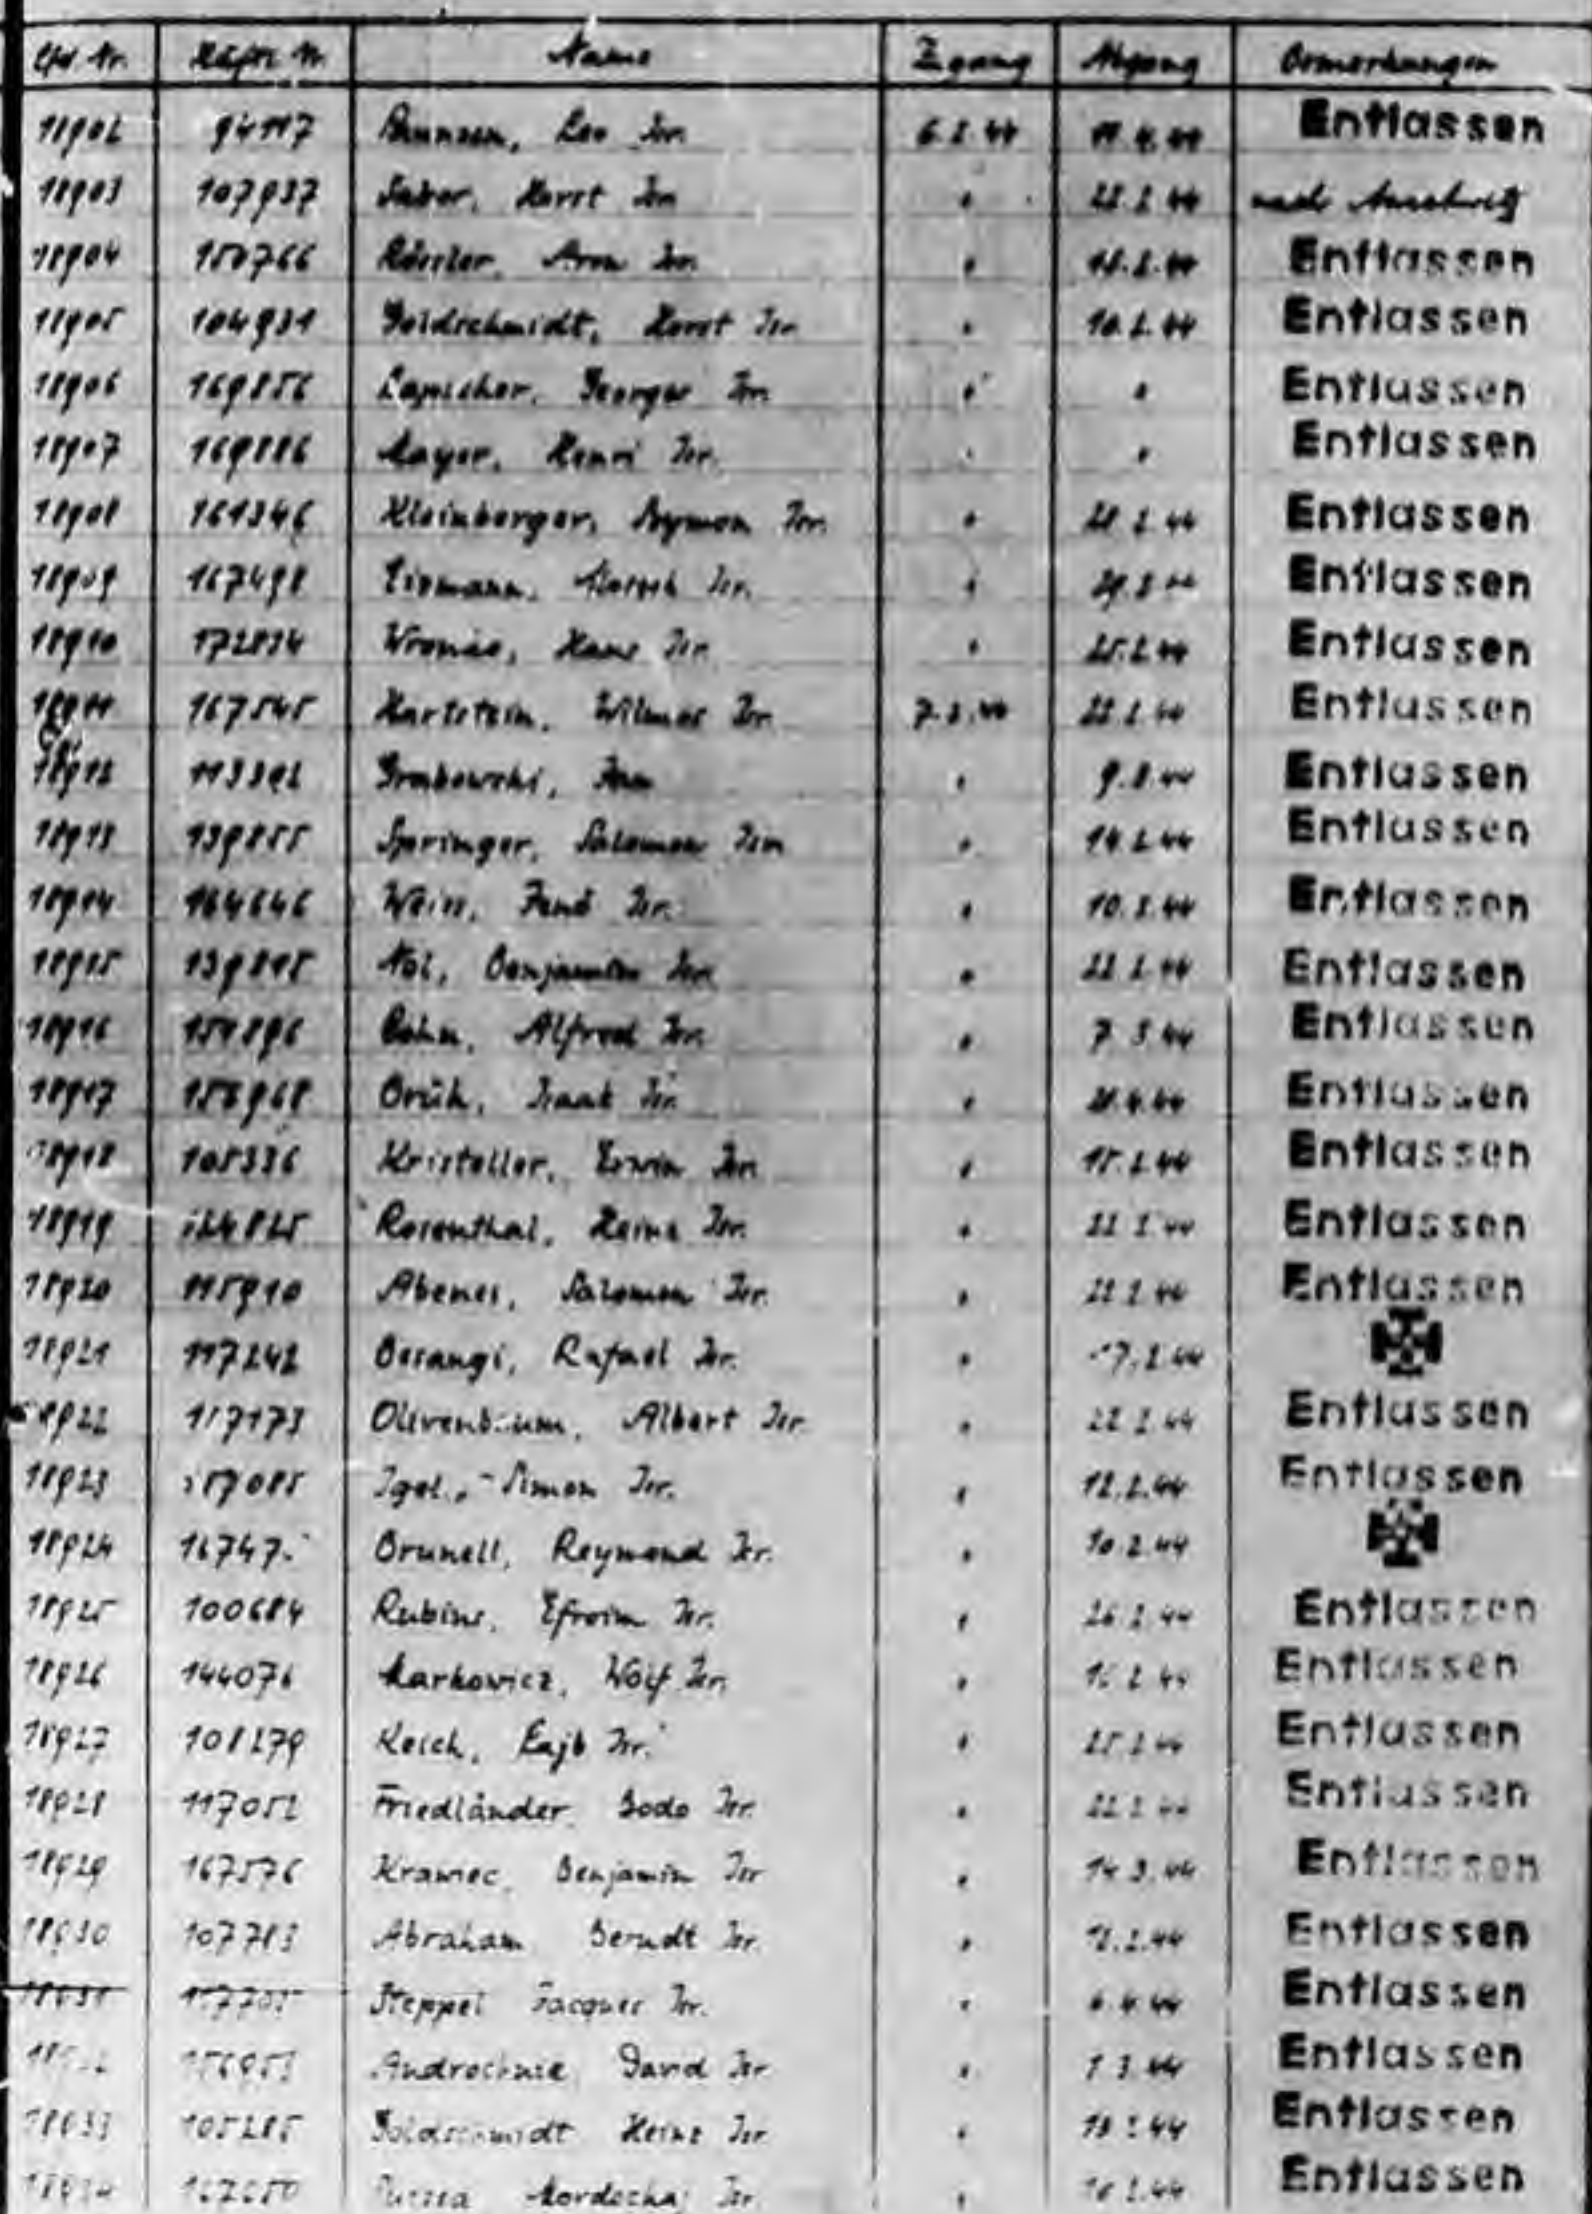 Lfd. Nr. Häftl. Nr. Name Zugang Abgang Bemerkungen
18902 94117 Leo Isr. 6.2.44 11.4.44 Entlassen
18903 107937 Horst Isr. " 22.2.44 nach Auschwitz
18904 150766 Rössler, Aron Isr. " Entlassen
18905 104931 Goldschmidt, Horst Isr. " 10.2.44 Entlassen
18906 169856 Lapischer, Georges Isr. " " Entlassen
18907 169886 Mayer, Henri Isr. " " Entlassen
18908 161346 Kleinberger, Szymon Isr. " 28.2.44 Entlassen
18909 167498 Isr. " Entlassen
18910 172834 Hans Isr. " 25.2.44 Entlassen
18911 167545 Hartstein, Wilmos Isr. 7.2.44 22.2.44 Entlassen
18912 113392 Grabowski, Jan " Entlassen
18913 139855 Springer, Salomon Isr. " 14.2.44 Entlassen
18914 164646 Weiss, Jenö Isr. " 10.2.44 Entlassen
18915 Benjamin Isr. " 22.2.44 Entlassen
18916 Cohn, Alfred Isr. " 7.3.44 Entlassen
18917 Brüh, Isaak Isr. " Entlassen
18918 105336 Kristeller, Erwin Isr. " 15.2.44 Entlassen
18919 Rosenthal, Heinz Isr. " 22.2.44 Entlassen
18920 115910 Abenes, Salomon Isr. " 22.2.44 Entlassen
18921 117242 Besangi, Rafael Isr. " 17.2.44
18922 117173 Albert Isr. " 22.2.44 Entlassen
18923 Igel, Simon Isr. " 12.2.44 Entlassen
18924 Brunell, Reymond Isr. " 10.2.44
18925 100684 Rubins, Efroim Isr. " 26.2.44 Entlassen
18926 144076 Markowicz, Wolf Isr. " Entlassen
18927 108279 Lajb Isr. " 25.2.44 Entlassen
18928 117052 Friedländer Bodo Isr. " 22.2.44 Entlassen
18929 167576 Krawiec, Benjamin Isr " 14.3.44 Entlassen
18930 107783 Abraham Berndt Isr. " Entlassen
18931 Steppel Jacques Isr. " 6.4.44 Entlassen
David Isr " Entlassen
18933 105285 Goldschmidt Heinz Isr " Entlassen
18934 Mordechai Isr " Entlassen